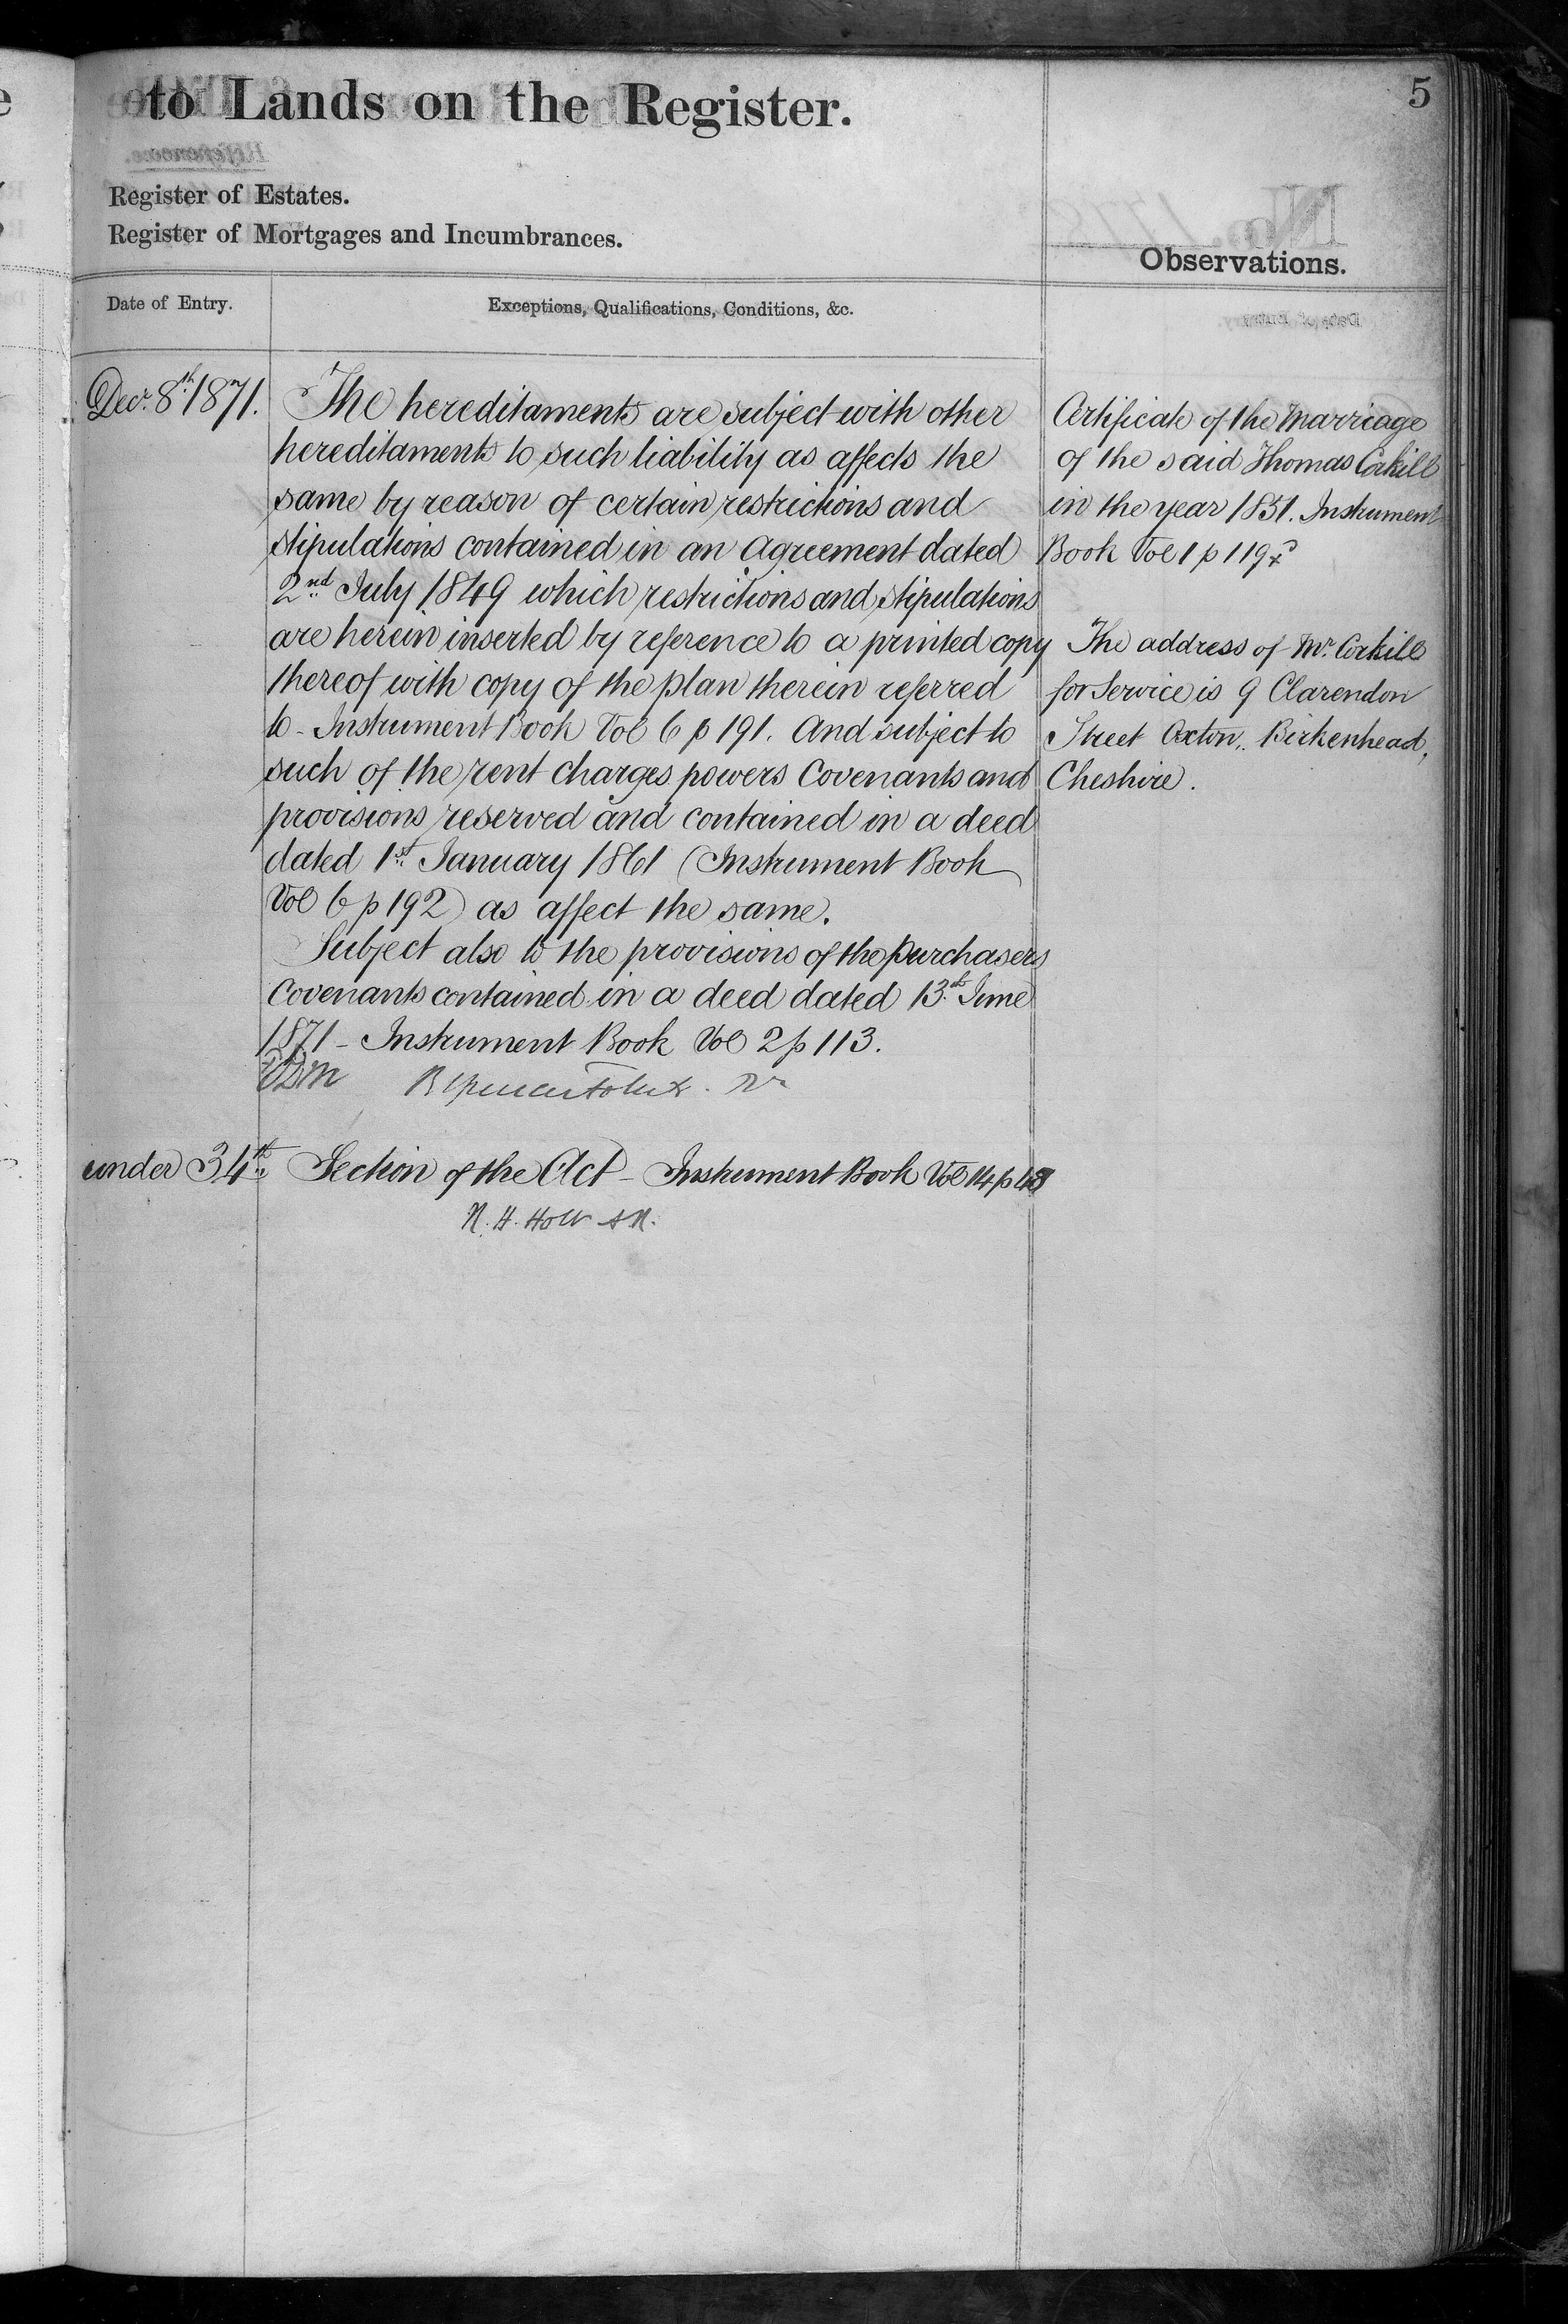 to Lands on the Register.
5
Register of Estates.
Register of Mortgages and Incumbrances.
Observations.
Date of Entry.
Exceptions, Qualifications, Conditions, &c.
Decr. 8th 1871.
The hereditaments are subject with other
hereditaments to such liability as affects the
same by reason of certain restrictions and
stipulations contained in an Agreement dated
2nd July 1849 which restrictions and stipulations
are herein inserted by reference to a printed copy
thereof with copy of the plan therein referred
to - Instrument Book Vol 6 p 191. And subject to
such of the rent charges powers Covenants and
provisions reserved and contained in a deed
dated 1st January 1861 (Instrument Book
Vol 6 p 192) as affect the same.
Subject also to the provisions of the purchasers
Covenants contained in a deed dated 13th June
1871 - Instrument Book Vol 2 p 113.
under 34th Section of the Act - Instrument Book Vol 14 p
N. H. Holt
Certificate of the Marriage
of the said Thomas Corkill
in the year 1851. Instrument
Book Vol 1 p 119
The address of Mr. Corkill
for Service is 9 Clarendon
Street Oxton, Birkenhead,
Cheshire.